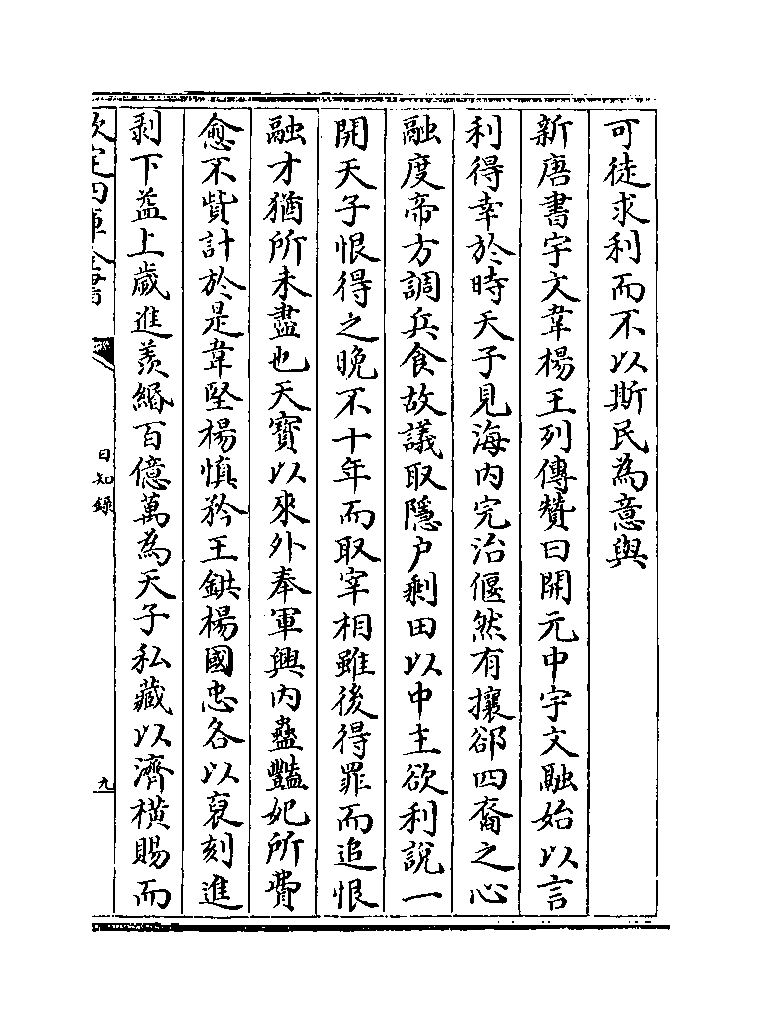 可徒求利而不以斯民為意與
新唐書宇文韋楊王列傳贊曰開元中宇文融始以言
利得幸於時天子見海内完治偃然有攘郤四裔之心
融度帝方調兵食故議取隱户剩田以中主欲利說一
開天子恨得之晚不十年而取宰相雖後得罪而追恨
融才猶所未盡也天寶以來外奉軍興内蠱豔妃所費
愈不貲計於是韋堅楊慎矜王鉷楊國忠各以裒刻進
剥下益上歲進羨緡百億萬為天子私藏以濟橫賜而
欽定四庫全書
日知録
九